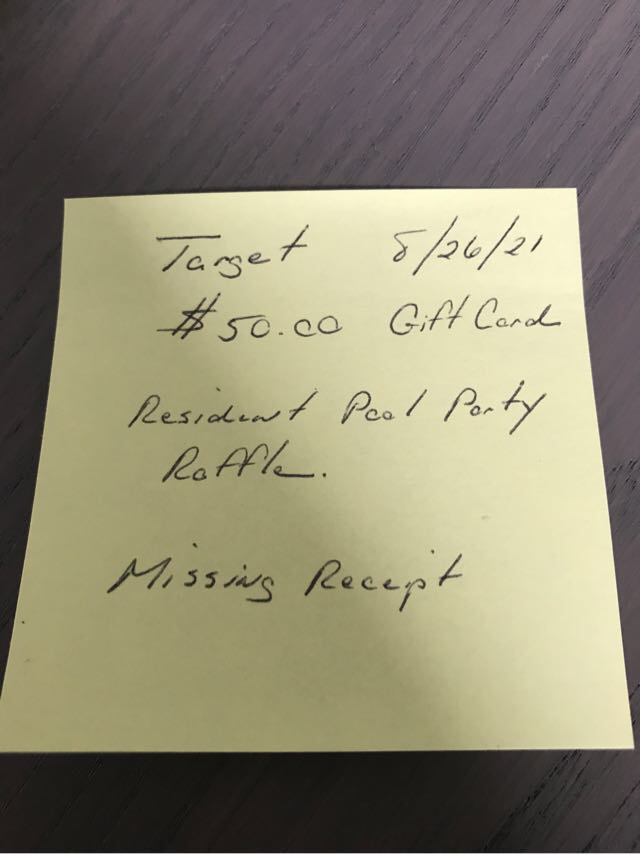 Target 8/26/21
$50.00 Gift Card
Resident Pool Party
Raffle.
Missing Receipt